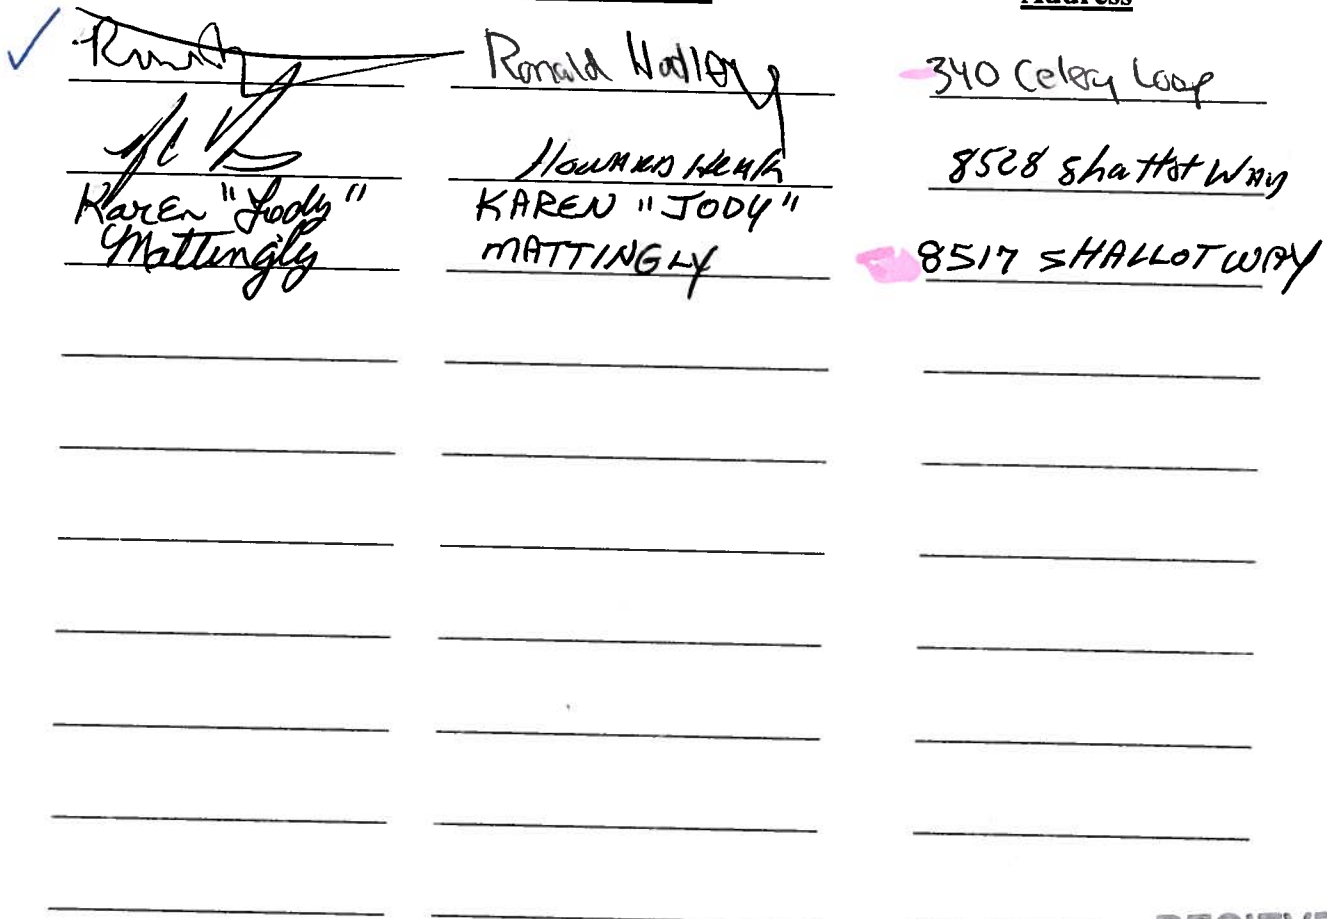 Address
Ronald Hadley 340 Celery Loop
Howard Henk 8528 Shallot Way
Karen "Jody" KAREN "JODY"
Mattingly MATTINGLY 8517 SHALLOT WAY